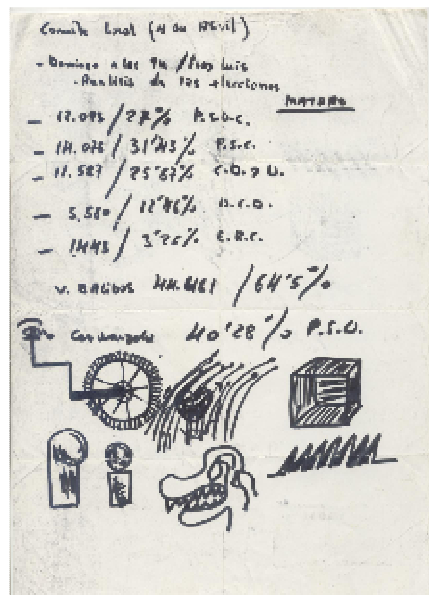 Comité Local (4 de Abril)
- Domingo a las
- Analisis de las elecciones
MATARO
- 12.095 / 27% P.S.U.C.
- 14.075 / 31'45% P.S.C.
- 11.587 / 25'87% C.D. y U.
- 5.580 / 12'46% U.C.D.
- 1443 / 3'25% E.R.C.
v. validos 44.461 / 64'5%
40'28% P.S.U.